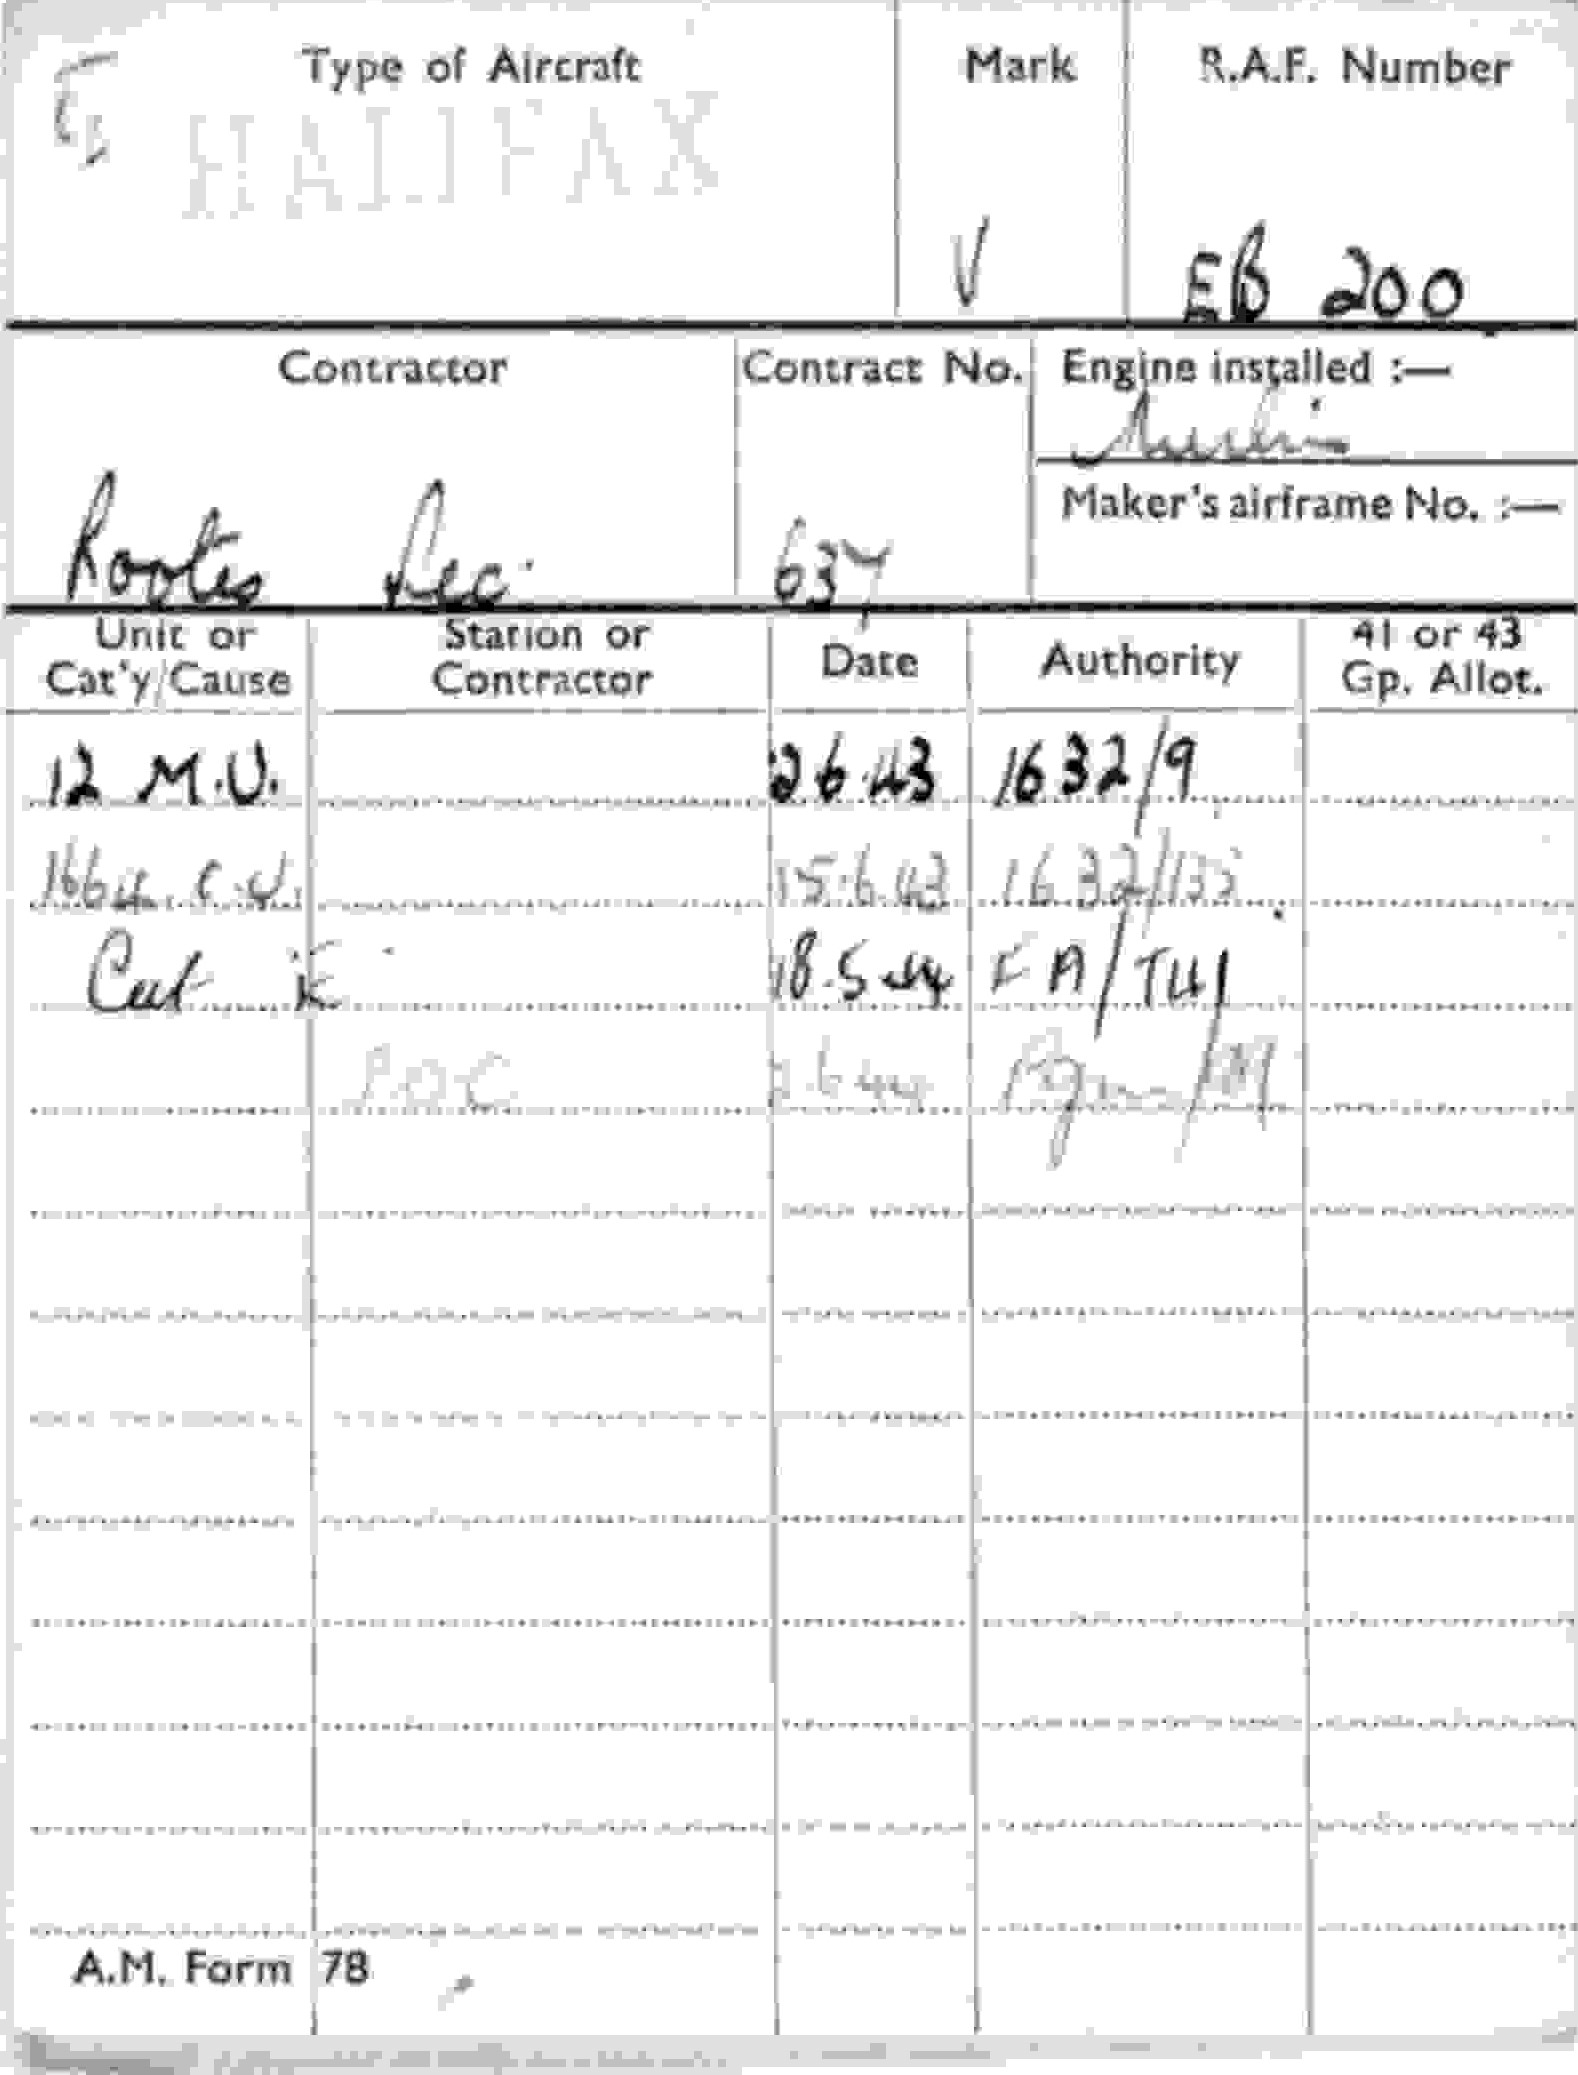 Type of Aircraft Mark R.A.F. Number
HALIFAX
V EB 200
Contractor Contract No. Engine installed :—
Merlin
Maker's airframe No. :—
Rootes Sec. 637
Unit or Cat'y/Cause Station or Contractor Date Authority 41 or 43 Gp. Allot.
12 M.U. 2 6.43 1632/9
1664 C.U. 15.6.43 1632/
Cat E 18.5.44 FA/
S.O.C 6 44
A.M. Form 78